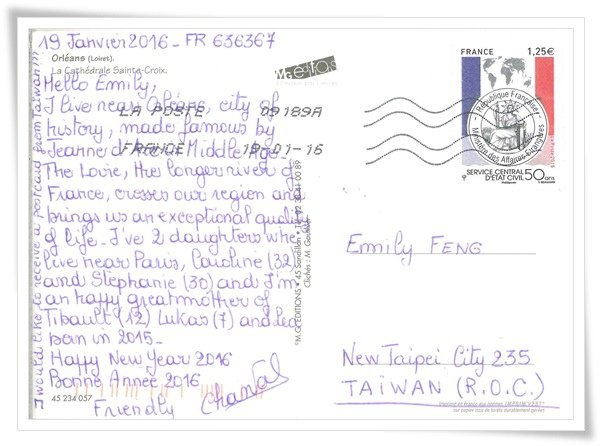 19 Janvier 2016 - FR 636367
Orléans (Loiret).
La Cathédrale Sainte-Croix.
Hello Emily,
I live near Orléans, city of
history, made famous by
Jeanne the Middle Age.
The Loire, the longer river of
France, crosses our region and
brings us an exceptional quality
of life. I've 2 daughters who
live near Paris, Caroline (32)
and Stephanie (30) and I'm
an happy greatmother of
Tibault (12) Lukas (7) and
born in 2015-
Happy New Year 2016
Bonne Année 2016
Friendly Chantal
45 234 057
I would like to receive a postcard from Taiwan!!!
LA POSTE 09189A
FRANCE 19-01-16
©M.G. EDITIONS • 45 Sandillon •
Clichés : M.
FRANCE 1,25€
République Française
Ministère des Affaires étrangères
SERVICE CENTRAL
D'ÉTAT CIVIL 50 ans
Emily FENG
New Taipei City 235
TAIWAN (R.O.C.)